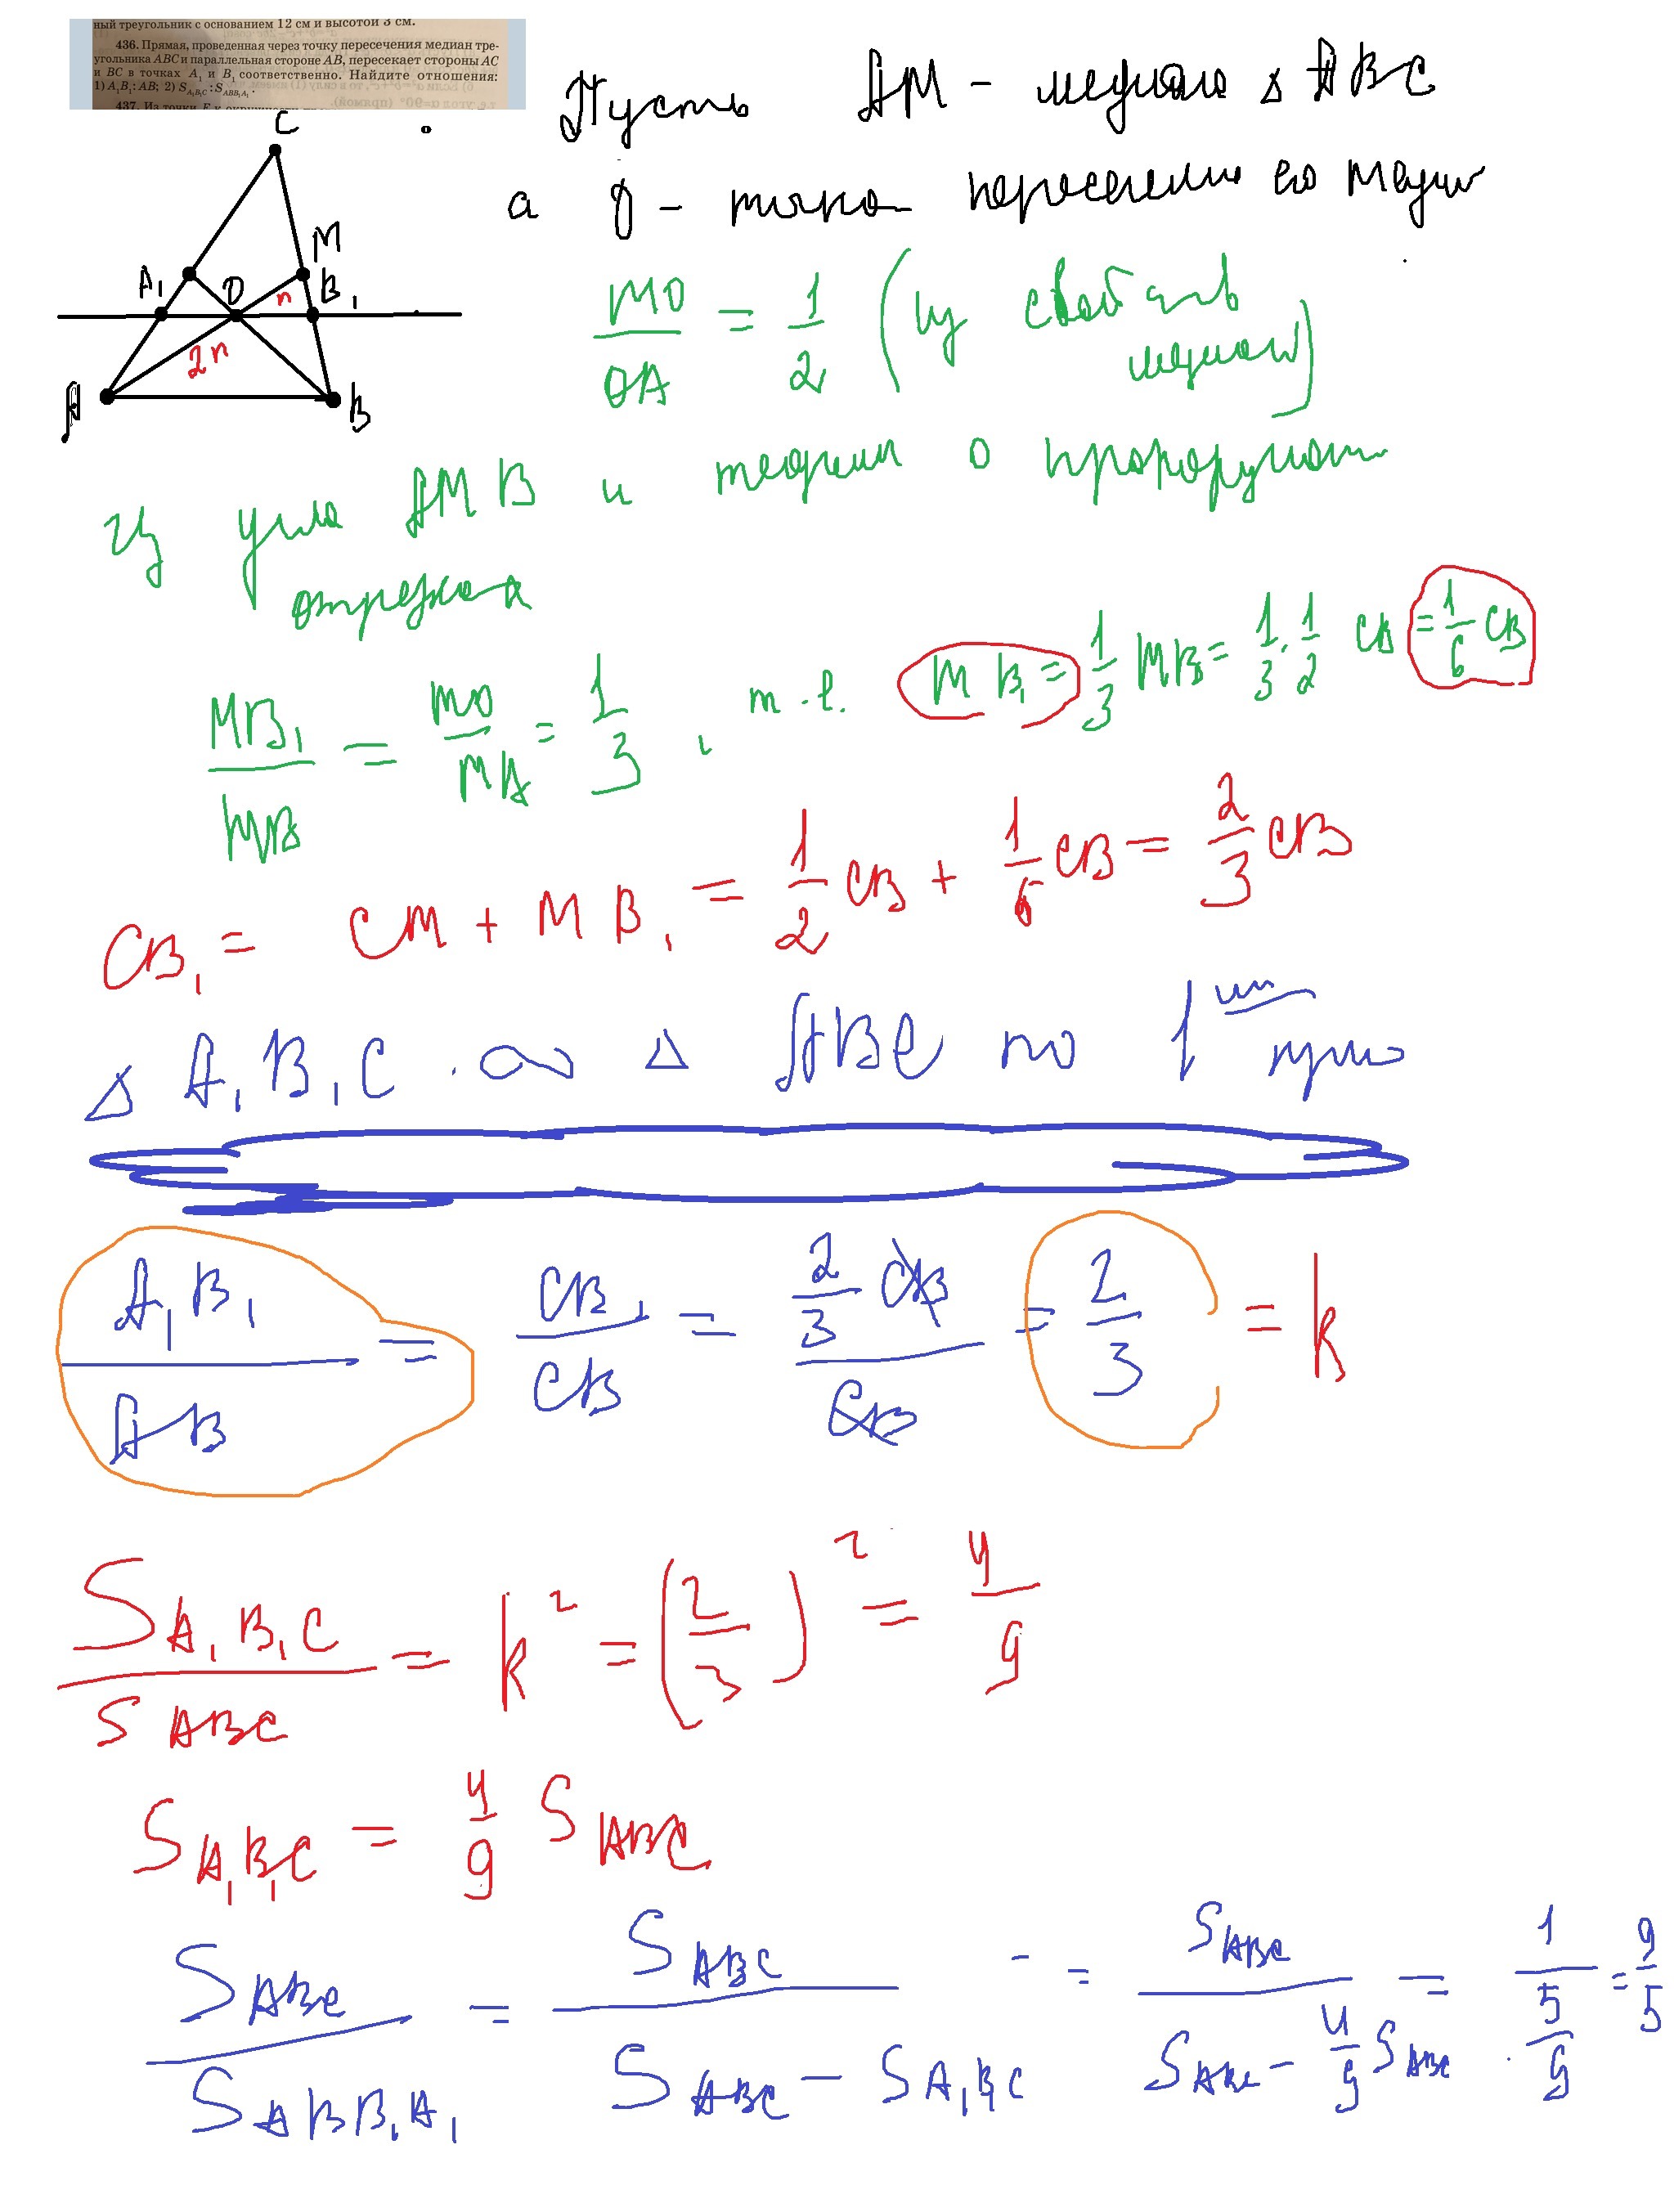 ный треугольник с основанием 12 см и высотой 3 см.
436. Прямая, проведенная через точку пересечения медиан тре-
угольника ABC и параллельная стороне AB, пересекает стороны AC
и BC в точках A₁ и B₁ соответственно. Найдите отношения:
1) A₁B₁ : AB; 2) S_A₁B₁C : S_ABB₁A₁.
437. Из точки
C
M
A₁ O n B₁
2n
A B
Пусть AM - медиана △ ABC
а O - точка пересечения его медиан
MO/OA = 1/2 (из свойств медиан)
Из угла AMB и теоремы о пропорциональн
отрезках
MB₁/MB = MO/MA = 1/3, т.е. MB₁ = 1/3 MB = 1/3 · 1/2 CB = 1/6 CB
CB₁ = CM + MB₁ = 1/2 CB + 1/6 CB = 2/3 CB
△ A₁B₁C ∾ △ ABC по 1
A₁B₁/AB = CB₁/CB = 2/3 CB/CB = 2/3 = k
S A₁B₁C/S ABC = k² = (2/3)² = 4/9
S A₁B₁C = 4/9 S ABC
S ABC/S ABB₁A₁ = S ABC/(S ABC - S A₁B₁C) = S ABC/(S ABC - 4/9 S ABC) = 1/(5/9) = 9/5